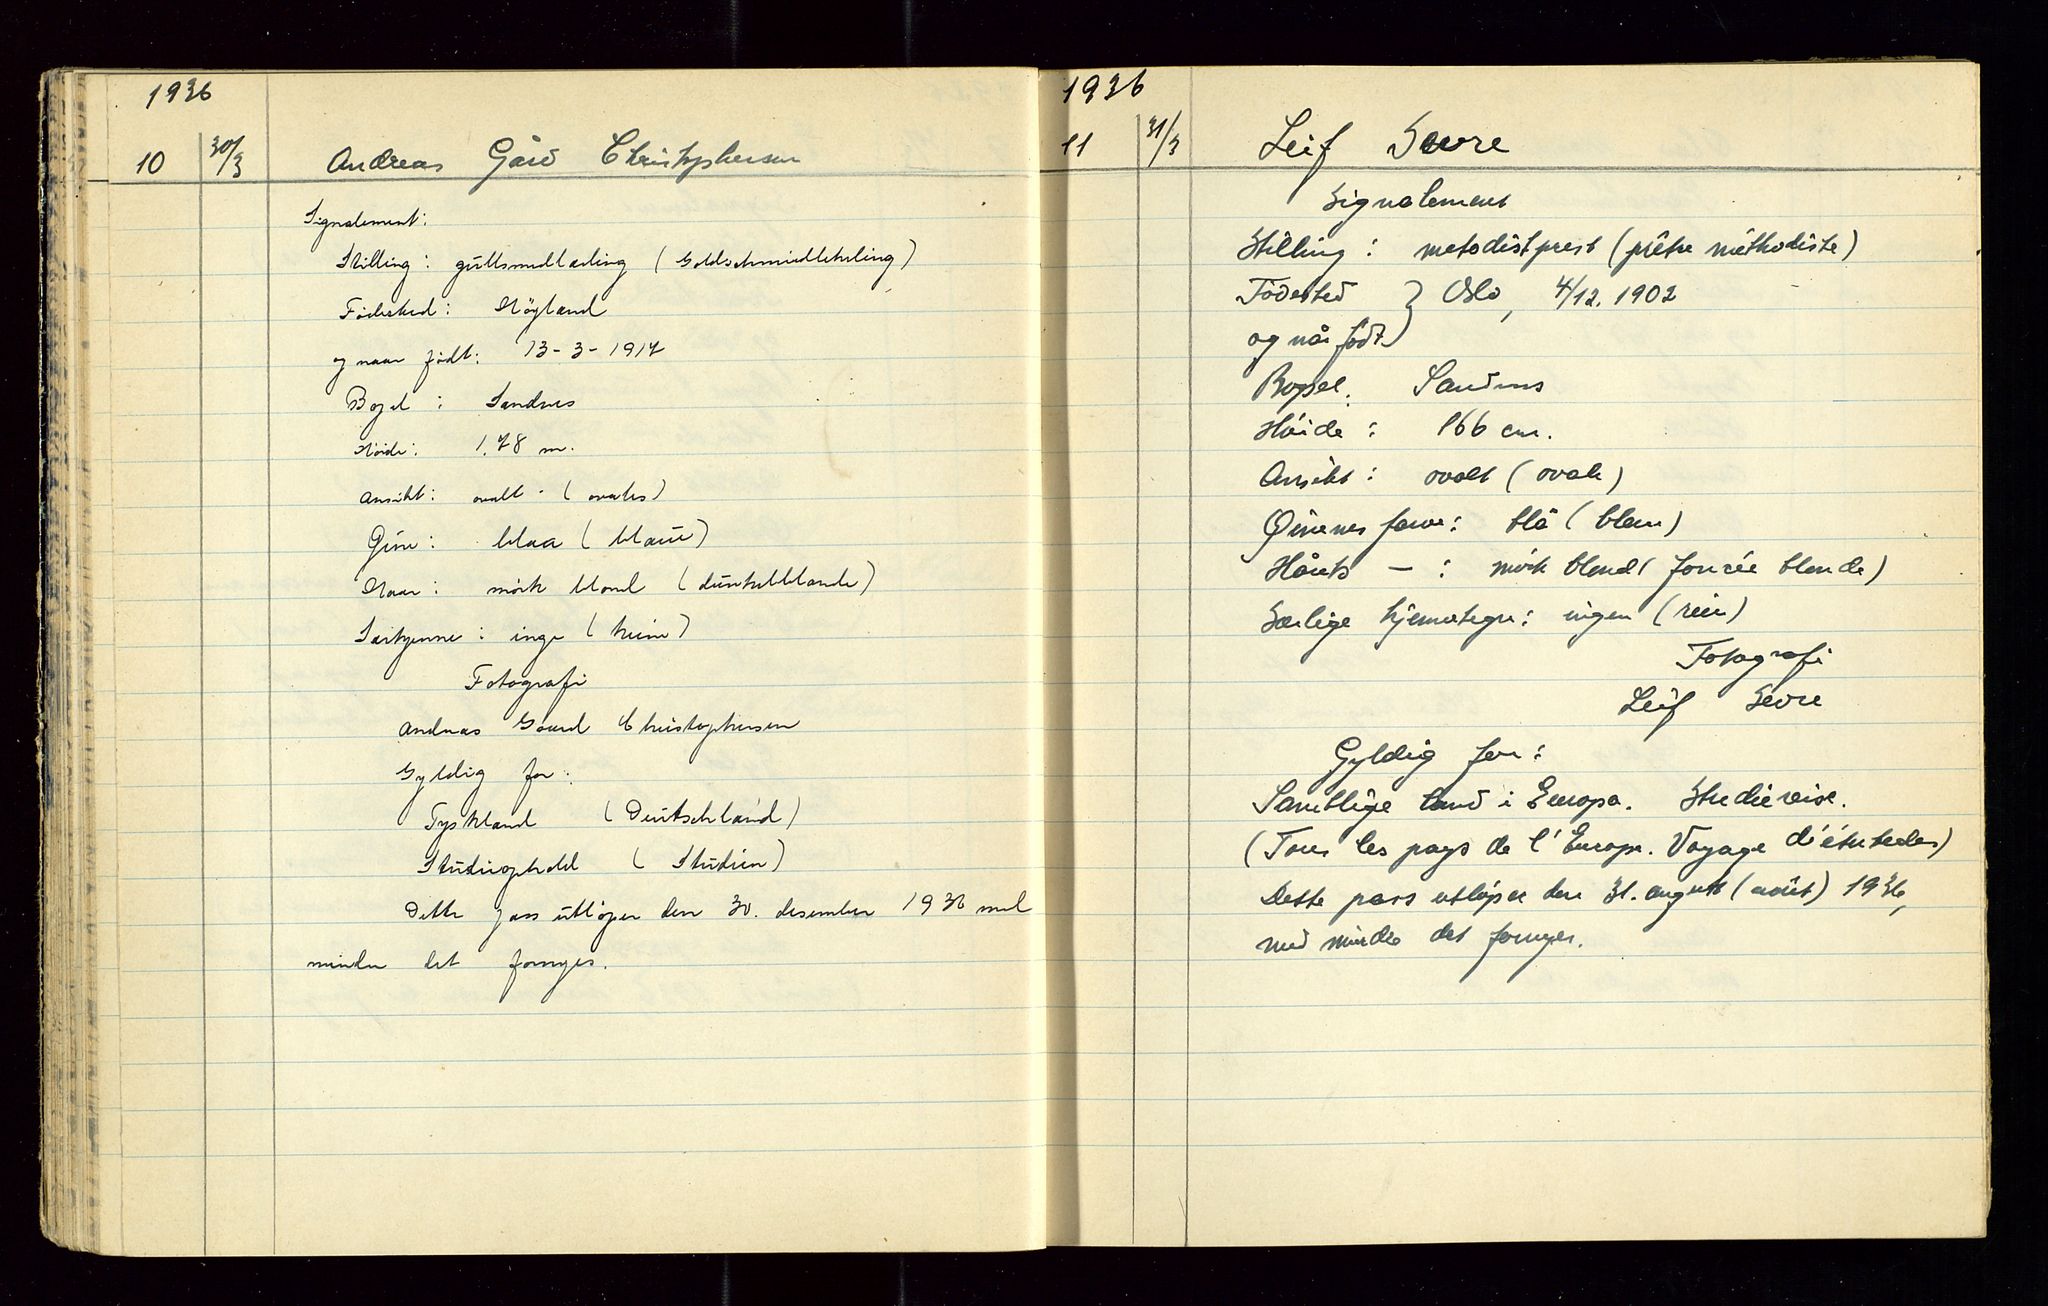 1936
10 30/3 Andreas Gård Christophersen
Signalement:
Stilling: gullsmedlærling (Goldschmiedlehrling)
Fødested: Høyland
og naar født: 13-3-1917
Bopel: Sandnes
Høide: 1,78 m.
Ansikt: ovalt (ovales)
Øine: blaa (blaue)
Haar: mørk blond (dunkelblonde)
Særkjenne: inge (keine)
Fotografi
Andreas Gaard Christophersen
Gyldig for:
Tyskland (Deutschland)
Studieophold (Studien)
Dette pass utløper den 30. desember 1936 med
mindre det fornyes.
1936
11 31/3 Leif Sevre
Signalement
Stilling: metodistprest (prêtre méthodiste)
Fødested } Oslo, 4/12. 1902
og når født
Bopel: Sandnes
Høide: 166 cm.
Ansikt: ovalt (ovale)
Øinenes farve: blå (bleu)
Hårets — : mørk blond (foncée blonde)
Særlige kjennetegn: ingen (rien)
Fotografi
Leif Sevre
Gyldig for:
Samtlige land i Europa. Studiereise.
(Tous les pays de l'Europe. Voyage d'étudedes)
Dette pass utløper den 31. august (août) 1936,
med mindre det fornyes.